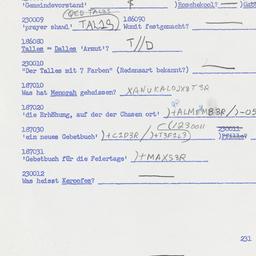 'Gemeindevorstand'
230009 186090
'prayer shawl' TAL19) Womit festgemacht?
186080
Tallem = Dallem 'Armut'? T//D
230010
"Der Talles mit 7 Farben" (Redensart bekannt?)
187010
Was hat Menorah geheissen? XANUKALOJX8T3R
187020
'die Erhöhung, auf der der Chasen ort' )+ALMEMB3R/)-05
187030 (1230011 230011
'ein neues Gebetbuch' )+C1D3R/)+T3F2L3)
187031
'Gebetbuch für die Feiertage' )+MAXS3R
230012
Was heisst Keroofes?
231